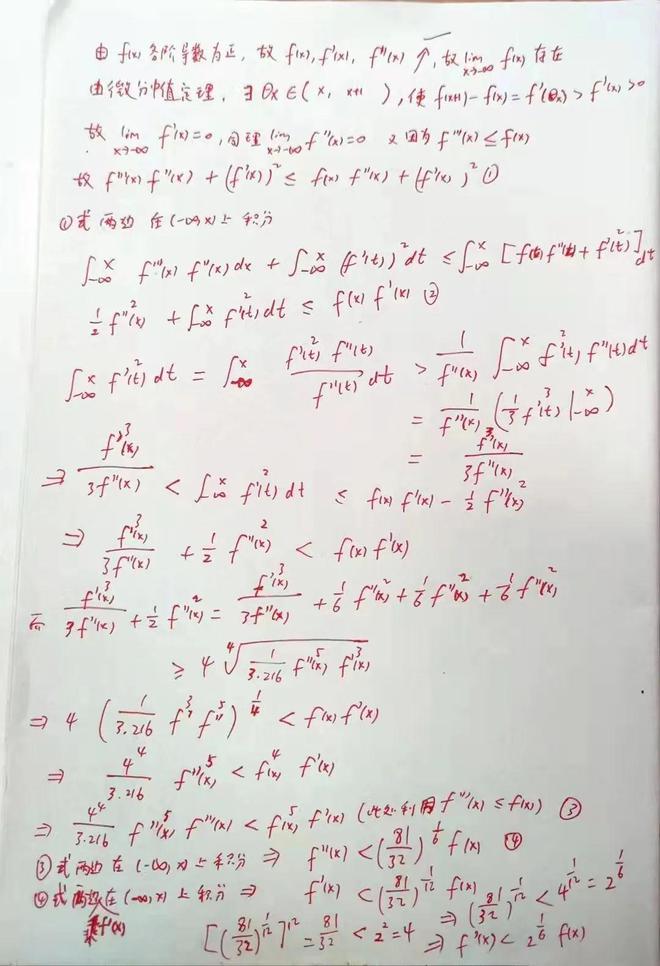 由 f(x) 各阶导数为正, 故 f(x), f'(x), f''(x) ↑, 故 lim_{x→-∞} f(x) 存在
由微分中值定理, ∃ θx ∈ (x, x+1), 使 f(x+1) - f(x) = f'(θx) > f'(x) > 0
故 lim_{x→-∞} f'(x) = 0, 同理 lim_{x→-∞} f''(x) = 0 又因为 f'''(x) ≤ f(x)
故 f'''(x) f''(x) + (f'(x))² ≤ f(x) f''(x) + (f'(x))² ①
①式两边在 (-∞, x) 上积分
∫_{-∞}^x f'''(x) f''(x) dx + ∫_{-∞}^x (f'(t))² dt ≤ ∫_{-∞}^x [f(t) f''(t) + f'(t)²] dt
½ f''(x)² + ∫_{-∞}^x f'(t)² dt ≤ f(x) f'(x) ②
∫_{-∞}^x f'(t)² dt = ∫_{-∞}^x f'(t)² f''(t) / f''(t) dt > 1/f''(x) ∫_{-∞}^x f'(t)² f''(t) dt
= 1/f''(x) (⅓ f'(t)³ |_{-∞}^x)
= f'(x)³ / 3f''(x)
⇒ f'(x)³ / 3f''(x) < ∫_{-∞}^x f'(t)² dt ≤ f(x) f'(x) - ½ f''(x)²
⇒ f'(x)³ / 3f''(x) + ½ f''(x)² < f(x) f'(x)
而 f'(x)³ / 3f''(x) + ½ f''(x)² = f'(x)³ / 3f''(x) + 1/6 f''(x)² + 1/6 f''(x)² + 1/6 f''(x)²
≥ 4 ⁴√(1/(3·216) f''(x)⁵ f'(x)³)
⇒ 4 (1/(3·216) f'³ f''⁵)^{1/4} < f(x) f'(x)
⇒ 4⁴/(3·216) f''(x)⁵ < f(x)⁴ f'(x)
⇒ 4⁴/(3·216) f''(x)⁵ f'''(x) < f(x)⁵ f'(x) (此处利用 f'''(x) ≤ f(x)) ③
③式两边在 (-∞, x) 上积分 ⇒ f''(x) < (81/32)^{1/6} f(x) ④
④式两边乘f'(x) 在 (-∞, x) 上积分 ⇒ f'(x) < (81/32)^{1/12} f(x)
[(81/32)^{1/12}]¹² = 81/32 < 2² = 4 ⇒ (81/32)^{1/12} < 4^{1/12} = 2^{1/6}
⇒ f'(x) < 2^{1/6} f(x)